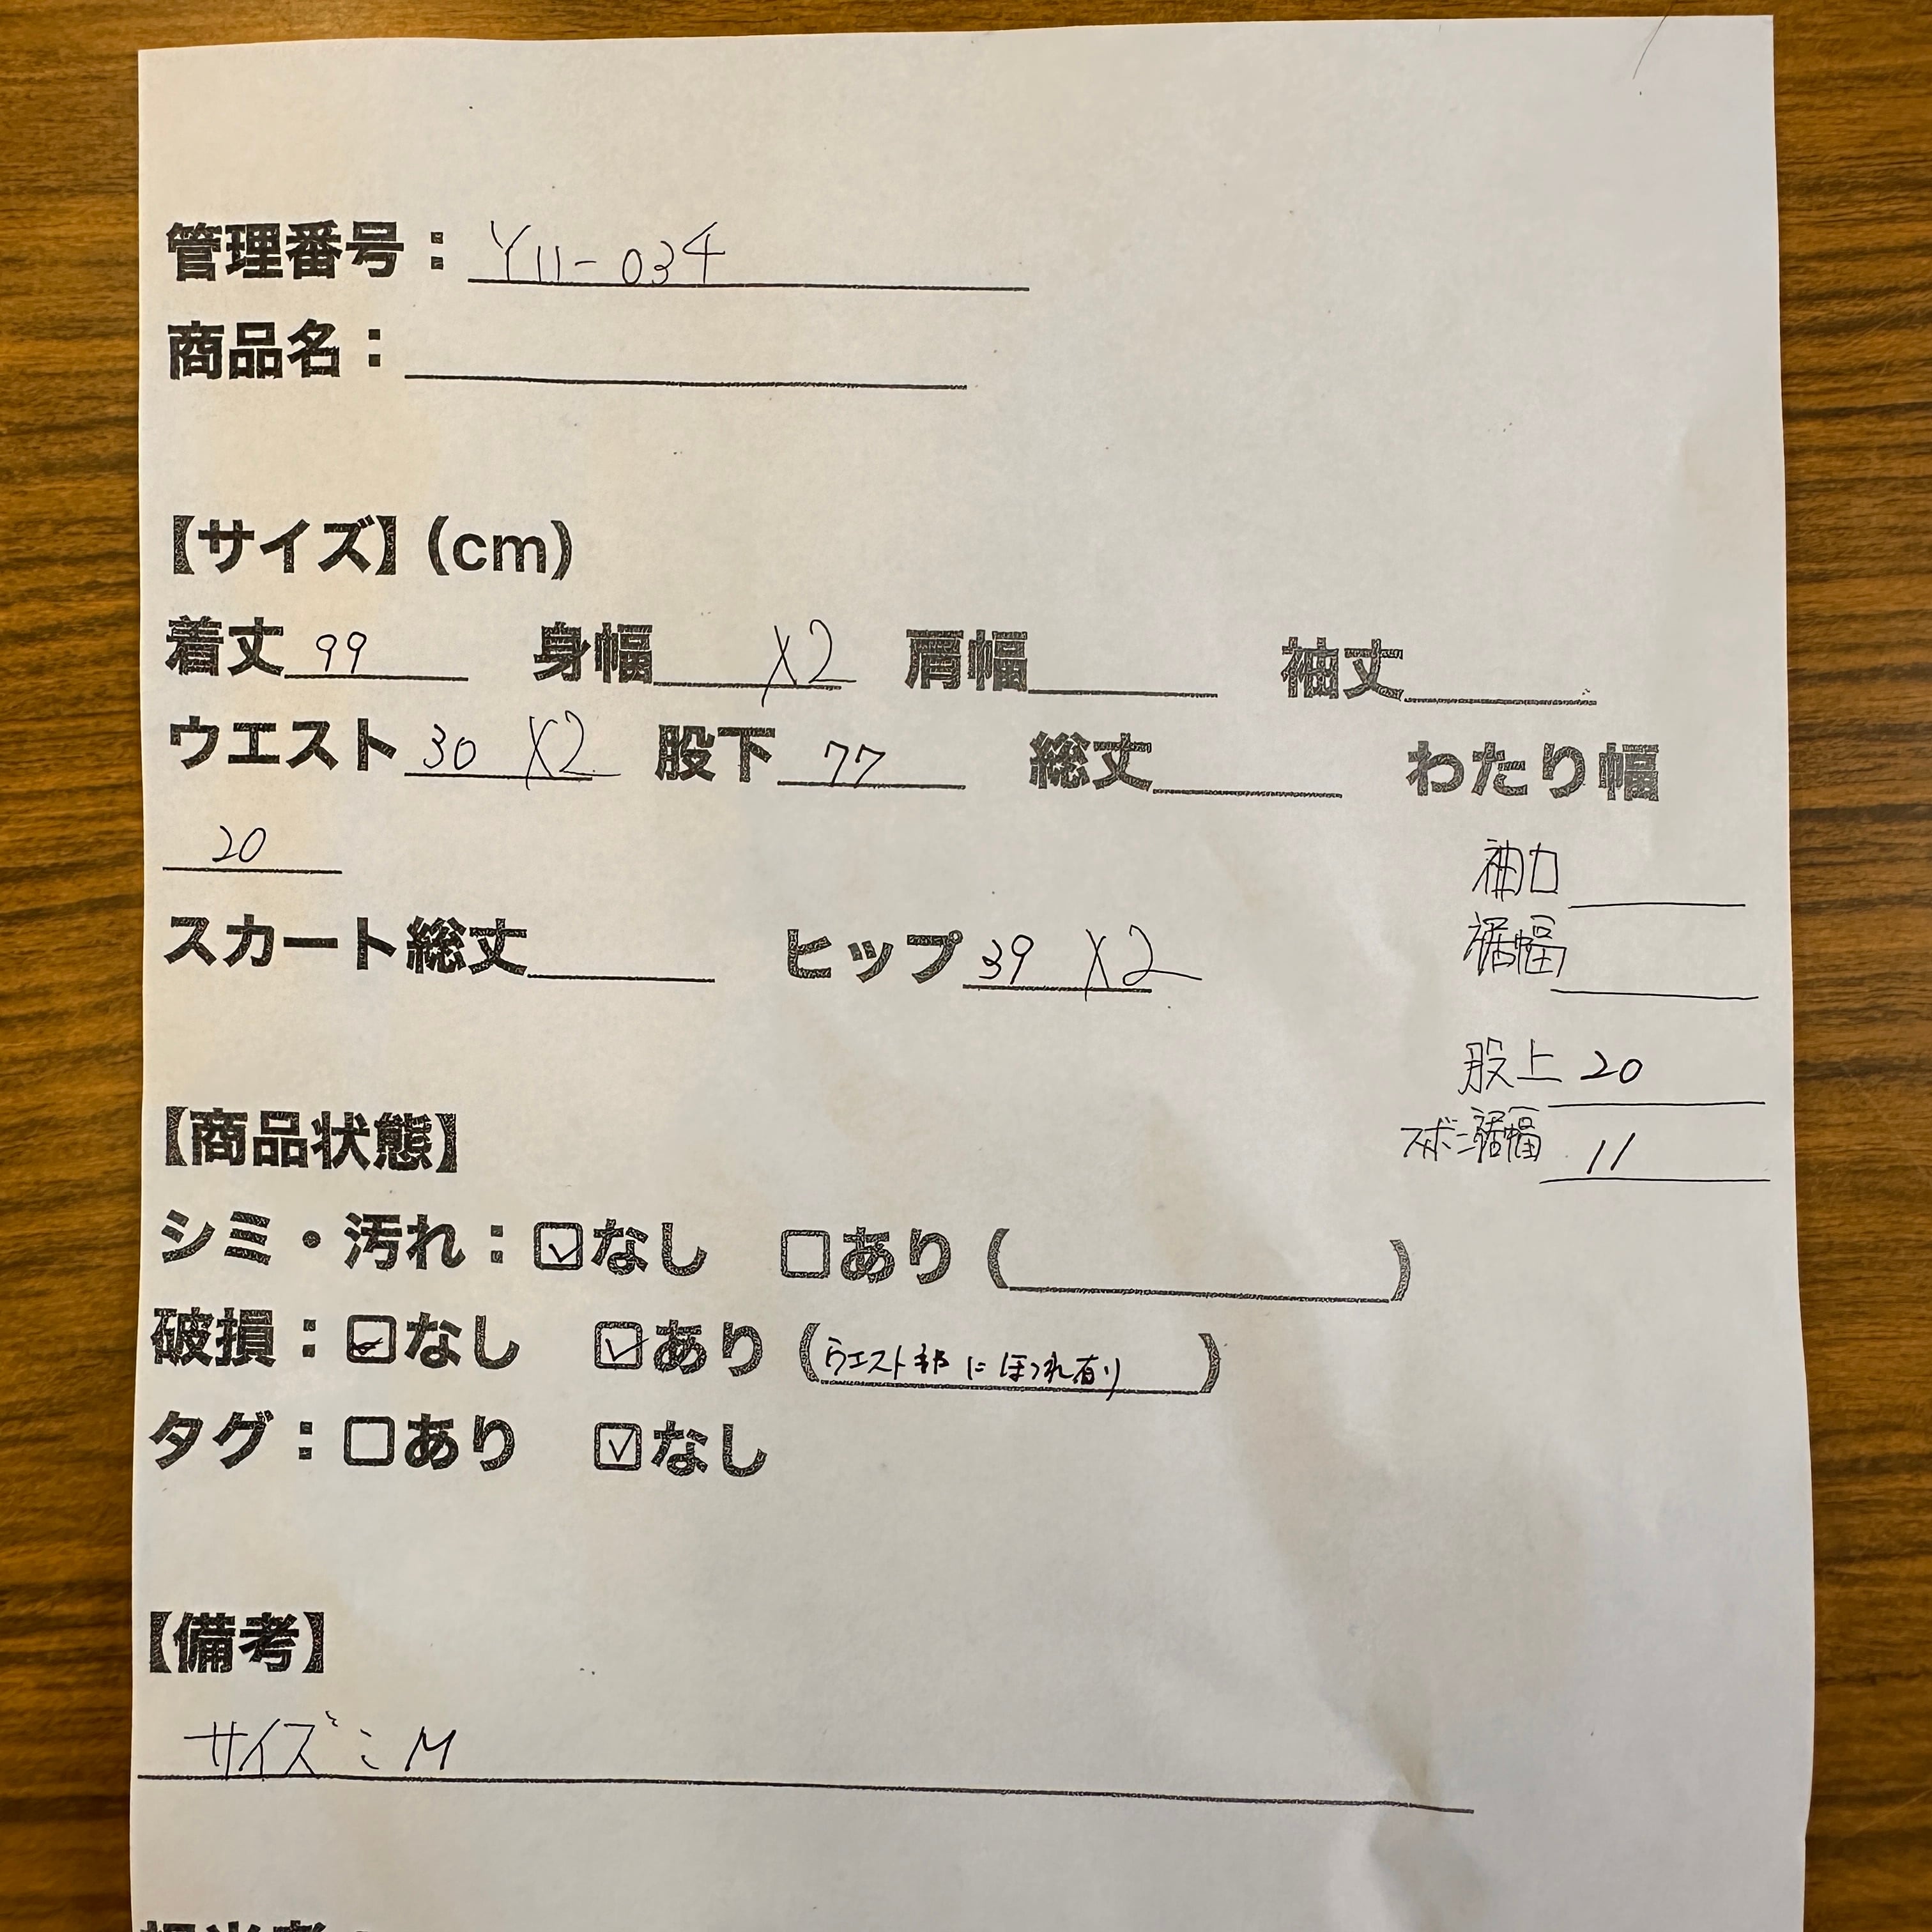 管理番号：Y11-034
商品名：
【サイズ】(cm)
着丈 99 身幅 X2 肩幅 袖丈
ウエスト 30 X2 股下 77 総丈 わたり幅
20
袖口
裾幅
スカート総丈 ヒップ 39 X2
股上 20
ズボン裾幅 11
【商品状態】
シミ・汚れ：☑なし □あり ( )
破損：☑なし ☑あり (ウエスト部にほつれ有り)
タグ：□あり ☑なし
【備考】
サイズ：M